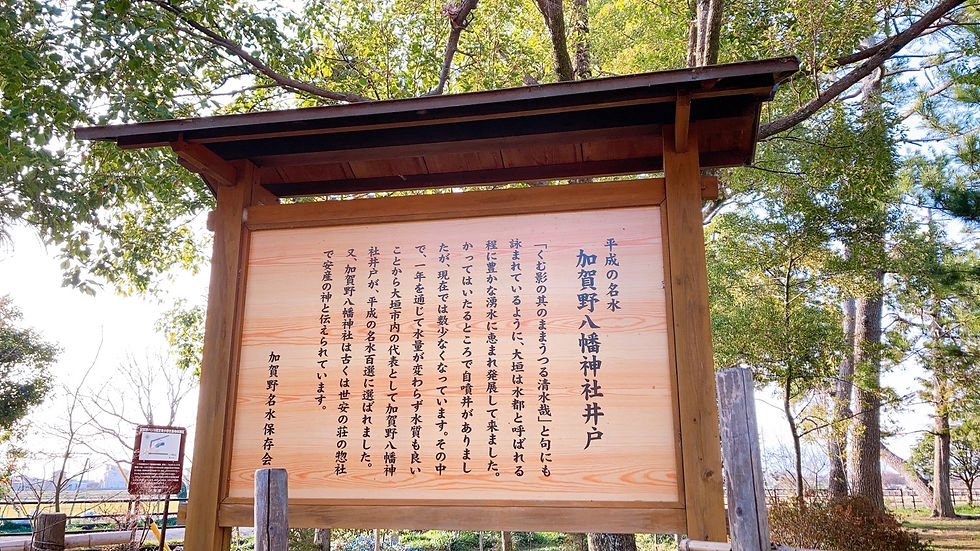 平成の名水
加賀野八幡神社井戸
「くむ影の其のままうつる清水哉」と句にも
詠まれているように、大垣は水都と呼ばれる
程に豊かな湧水に恵まれ発展して来ました。
かってはいたるところで自噴井がありまし
たが、現在では数少なくなっています。その中
で、一年を通じて水量が変わらず水質も良い
ことから大垣市内の代表として加賀野八幡神
社井戸が、平成の名水百選に選ばれました。
又、加賀野八幡神社は古くは世安の荘の惣社
で安産の神と伝えられています。
加賀野名水保存会